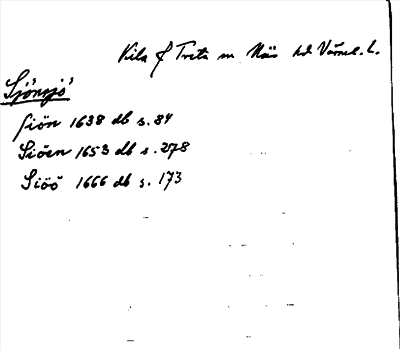 Kila f Treta m Näs hd Värml. l.
Sjönsjö
Siön 1638 db s. 84
Siöen 1653 db s. 278
Siöö 1666 db s. 173